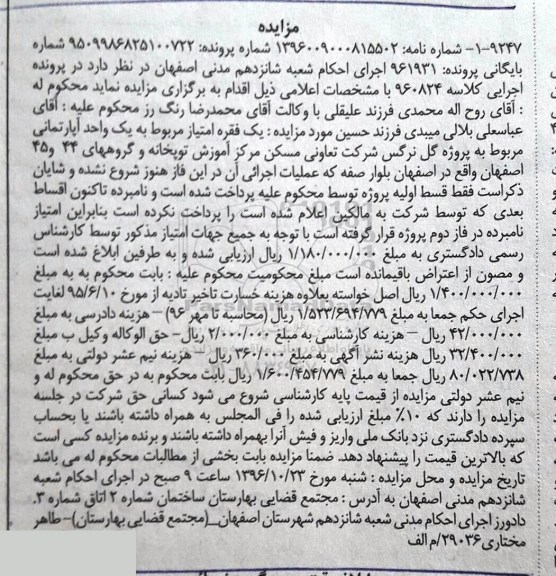 مزایده
۹۲۴۷-۱- شماره نامه: ۱۳۹۶۰۰۹۰۰۰۸۱۵۵۰۲ شماره پرونده: ۹۵۰۹۹۸۶۸۲۵۱۰۰۷۲۲ شماره
بایگانی پرونده: ۹۶۱۹۳۱ اجرای احکام شعبه شانزدهم مدنی اصفهان در نظر دارد در پرونده
اجرایی کلاسه ۹۶۰۸۲۴ با مشخصات اعلامی ذیل اقدام به برگزاری مزایده نماید محکوم له
: آقای روح اله محمدی فرزند علیقلی با وکالت آقای محمدرضا رنگ رز محکوم علیه : آقای
عباسعلی بلالی میبدی فرزند حسین مورد مزایده : یک فقره امتیاز مربوط به یک واحد آپارتمانی
مربوط به پروژه گل نرگس شرکت تعاونی مسکن مرکز آموزش توپخانه و گروههای ۴۴ و۴۵
اصفهان واقع در اصفهان بلوار صفه که عملیات اجرائی آن در این فاز هنوز شروع نشده و شایان
ذکراست فقط قسط اولیه پروژه توسط محکوم علیه پرداخت شده است و نامبرده تاکنون اقساط
بعدی که توسط شرکت به مالکین اعلام شده است را پرداخت نکرده است بنابراین امتیاز
نامبرده در فاز دوم پروژه قرار گرفته است با توجه به جمیع جهات امتیاز مذکور توسط کارشناس
رسمی دادگستری به مبلغ ۱/۱۸۰/۰۰۰/۰۰۰ ریال ارزیابی شده و به طرفین ابلاغ شده است
و مصون از اعتراض باقیمانده است مبلغ محکومیت محکوم علیه : بابت محکوم به به مبلغ
۱/۴۰۰/۰۰۰/۰۰۰ ریال اصل خواسته بعلاوه هزینه خسارت تاخیر تادیه از مورخ ۹۵/۶/۱۰ لغایت
اجرای حکم جمعا به مبلغ ۱/۵۲۳/۶۹۴/۷۷۹ ریال (محاسبه تا مهر ۹۶) – هزینه دادرسی به مبلغ
۴۲/۰۰۰/۰۰۰ ریال – هزینه کارشناسی به مبلغ ۲/۰۰۰/۰۰۰ ریال– حق الوکاله وکیل ب مبلغ
۳۲/۴۰۰/۰۰۰ ریال هزینه نشر آگهی به مبلغ ۳۶۰/۰۰۰ ریال – هزینه نیم عشر دولتی به مبلغ
۸۰/۰۲۲/۷۳۸ ریال جمعا به مبلغ ۱/۶۰۰/۴۵۴/۷۷۹ ریال بابت محکوم به در حق محکوم له و
نیم عشر دولتی مزایده از قیمت پایه کارشناسی شروع می شود کسانی حق شرکت در جلسه
مزایده را دارند که ۱۰٪ مبلغ ارزیابی شده را فی المجلس به همراه داشته باشند یا بحساب
سپرده دادگستری نزد بانک ملی واریز و فیش آنرا بهمراه داشته باشند و برنده مزایده کسی است
که بالاترین قیمت را پیشنهاد دهد. ضمنا مزایده بابت بخشی از مطالبات محکوم له می باشد
تاریخ مزایده و محل مزایده : شنبه مورخ ۱۳۹۶/۱۰/۲۳ ساعت ۹ صبح در اجرای احکام شعبه
شانزدهم مدنی اصفهان به آدرس : مجتمع قضایی بهارستان ساختمان شماره ۲ اتاق شماره ۳.
دادورز اجرای احکام مدنی شعبه شانزدهم شهرستان اصفهان_(مجتمع قضایی بهارستان)-طاهر
مختاری۲۹۰۳۶/م الف